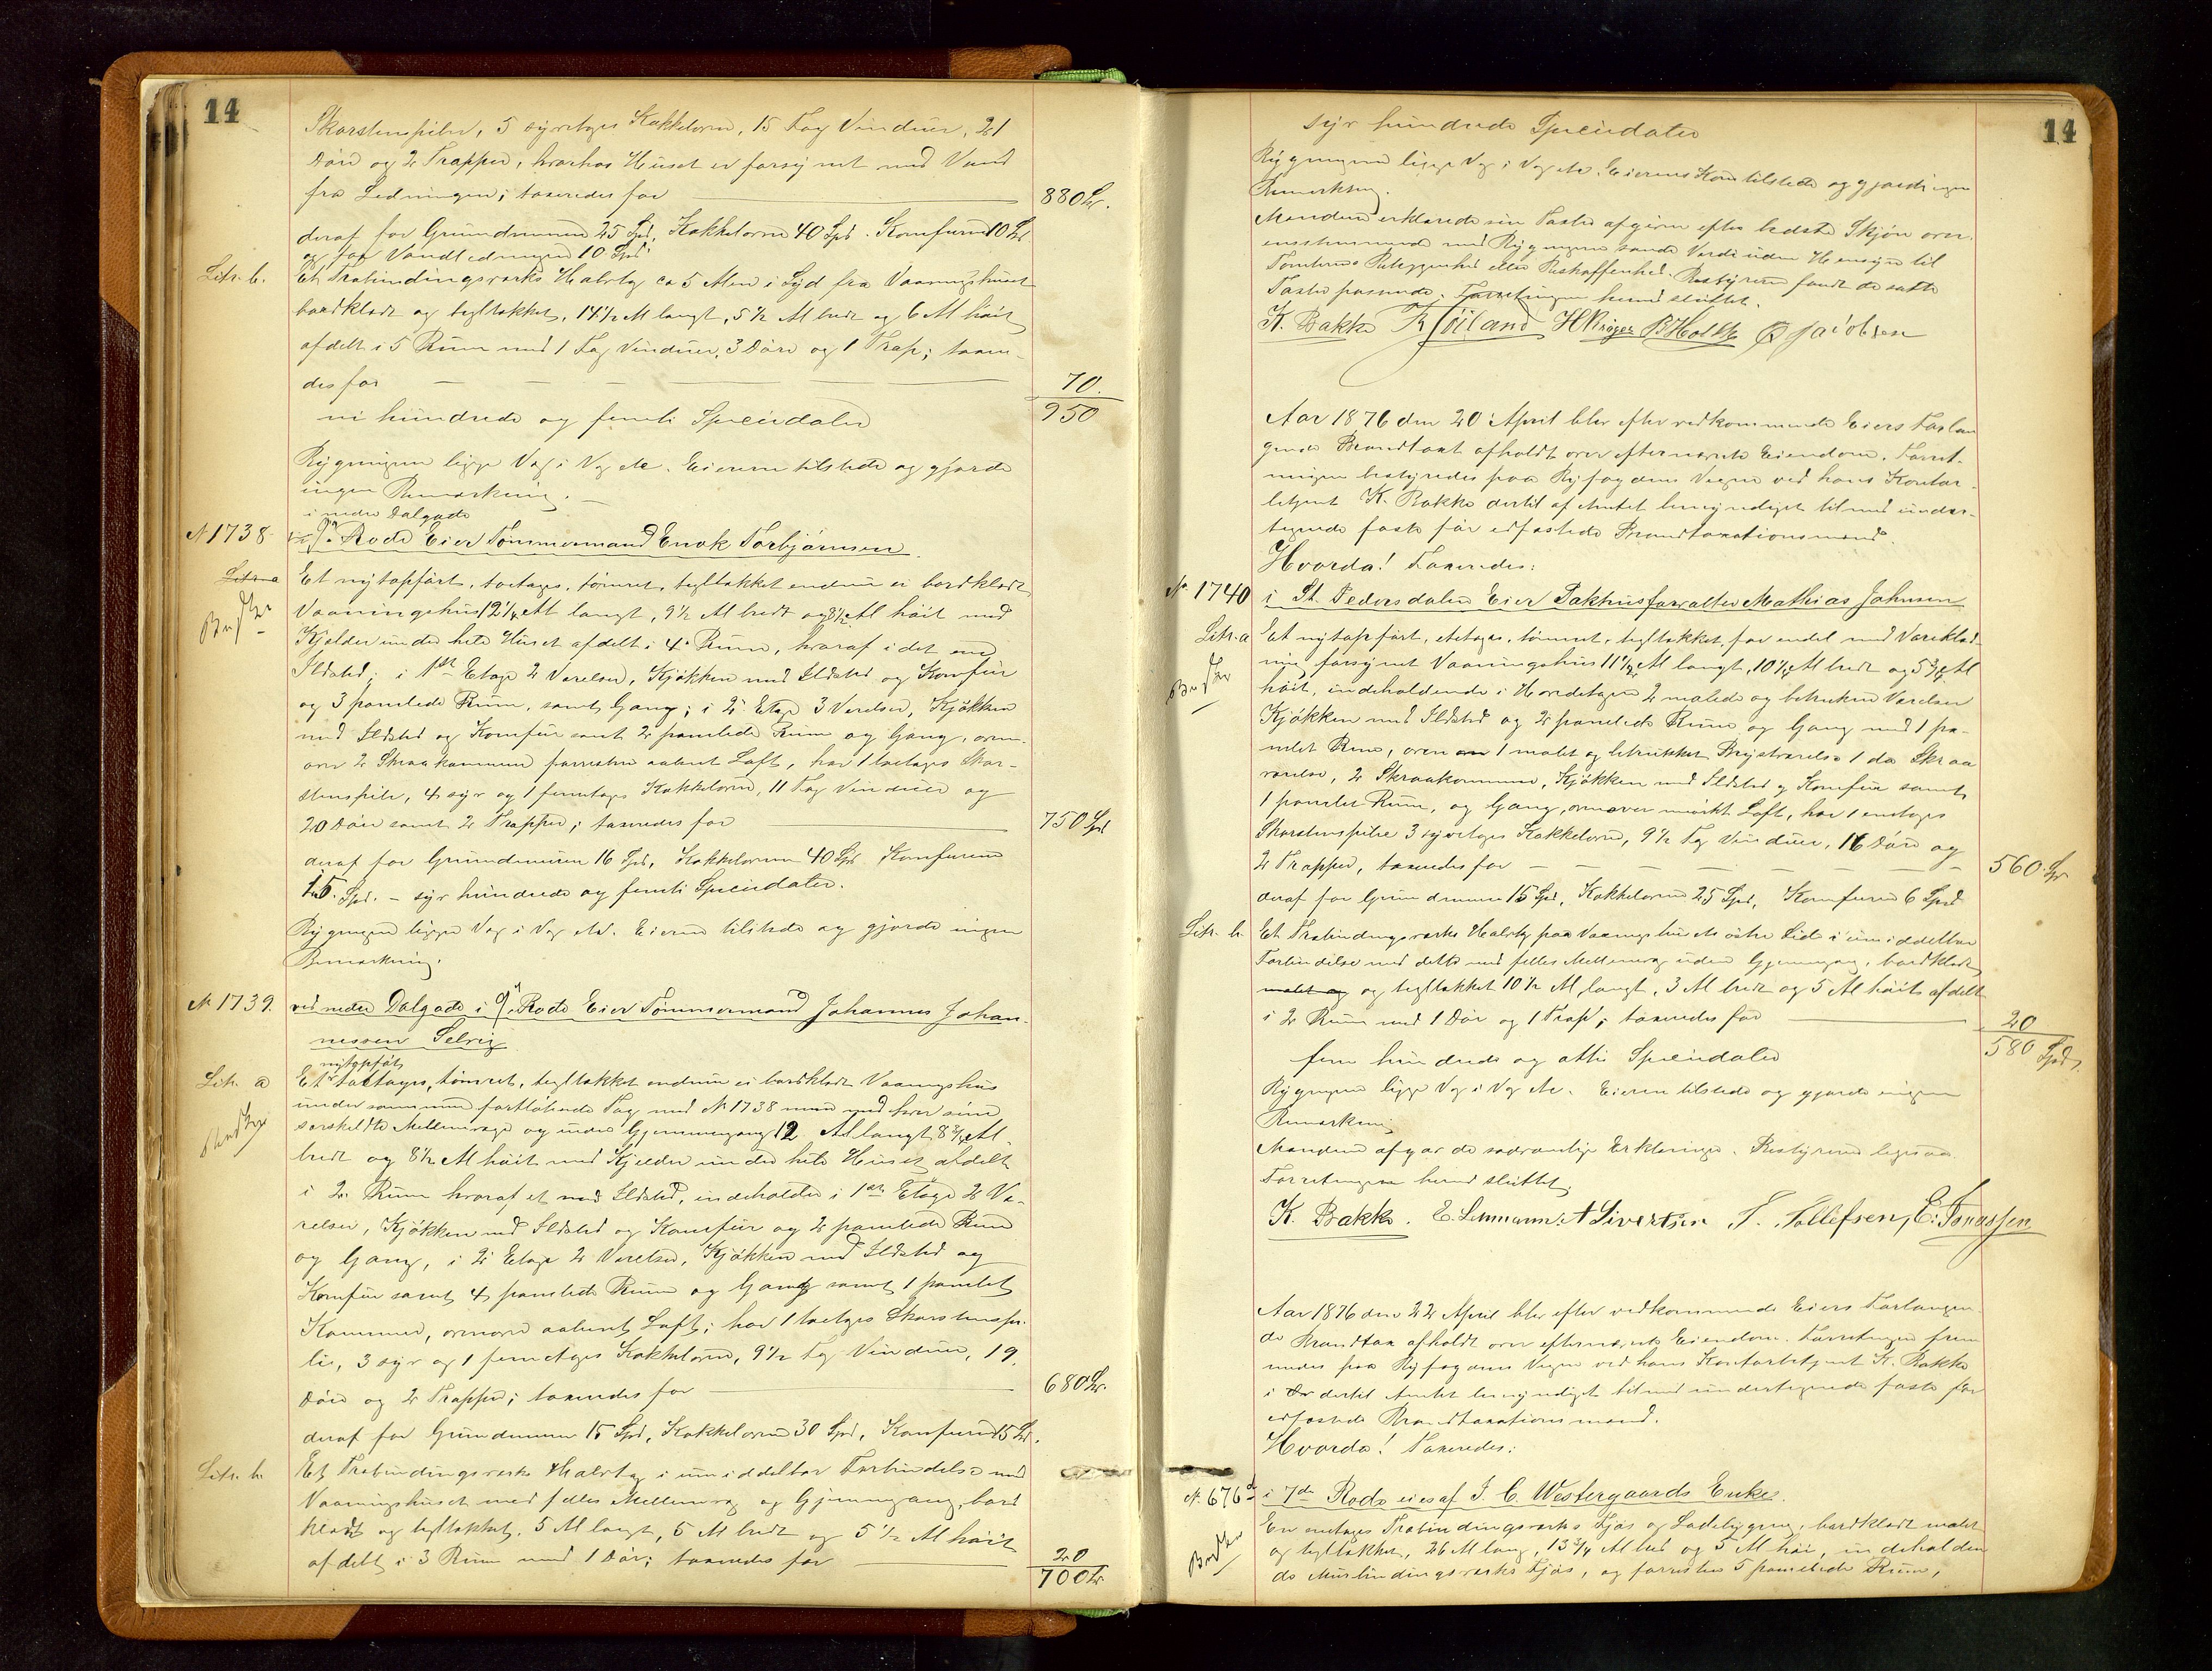 14
Skorstenspiber, 5 syvetages Kakkelovne, 15 Fag Vinduer, 21
Døre og 2 Trapper, hvorhos Huset er forsynet med Vand
fra Ledningen; taxeredes for 880 Spd.
deraf for Grundmuren 25 Spd, Kakkelovne 40 Spd. Komfurene 10 Spd
og for Vandledningen 10 Spd.
Litr. b. Et Træbindingsværks Halvtag ca 5 Alen i Syd fra Vaaningshuset
bordklædt og tegltækket, 14½ Al langt, 5½ Al bredt og 6 Al høit
afdelt i 5 Rum med 1 Fag Vinduer, 3 Døre og 1 Trap; taxere-
des for 70.
950
ni hundrede og femti Speciedaler
Bygningen ligge Væg i Væg etc. Eieren tilstede og gjorde
ingen Bemærkning.
i nedre Dalgade
N 1738 9de Rode Eier Tømmermand Enok Torbjørnsen.
Litr. a Et nyopført, toetages, tømret, tegltækket endnu ei bordklædt
Vaaningshus 12¼ Al langt, 9½ Al bredt og 8½ Al høit med
Kjelder under hele Huset afdelt i 4 Rum, hvoraf i det ene
Ildsted; i 1ste Etage 2 Værelser, Kjøkken med Ildsted og Komfur
og 3 panelede Rum, samt Gang; i 2 Etage 3 Værelser, Kjøkken
med Ildsted og Komfur samt 2 panelede Rum og Gang, oven-
over 2 Skraakammere forresten aabent Loft, har 1 toetages Skor-
stenspibe, 4 syv og 1 femetages Kakkelovne, 11 Fag Vinduer og
20 Døre samt 2 Trapper; taxeredes for 750 Spd
deraf for Grundmuren 16 Spd, Kakkelovnene 40 Spd Komfurene
15 Spd. – syv hundrede og femti Speciedaler.
Bygningen ligger Væg i Væg etc. Eieren tilstede og gjorde ingen
Bemærkning.
N 1739. ved nedre Dalgade i 9de Rode Eier Tømmermand Johannes Johan-
nessen Selvig
nyopført
Litr. a Et toetages, tømret, tegltækket endnu ei bordklædt Vaaningshus
under sammen fortløbende Tag med N 1738 men med hver sine
særskildte Mellemvæge og uden Gjennemgang 12 Al langt, 8¾ Al
bredt og 8½ Al høit med Kjelder under hele Huset afdelt
i 2 Rum hvoraf et med Ildsted, indeholder i 1ste Etage 2 Væ-
relser, Kjøkken med Ildsted og Komfur og 2 panelede Rum
og Gang, i 2 Etage 2 Værelser, Kjøkken med Ildsted og
Komfur samt 4 panelede Rum og Gang samt 1 panelet
Kammer, ovenover aabent Loft; har 1 toetages Skorstenspi-
be, 3 syv og 1 femetages Kakkelovne, 9½ Fag Vinduer, 19
Døre og 2 Trapper; taxeredes for 680 Spd.
deraf for Grundmuren 15 Spd, Kakkelovne 30 Spd, Komfurene 15 Spd.
Litr. b. Et Træbindingsværks Halvtag i umiddelbar Forbindelse med
Vaaningshuset med fælles Mellemvæg og Gjennemgang, bord
klædt og tegltækket, 5 Al langt, 5 Al bredt og 5½ Al høit
afdelt i 3 Rum med 1 Dør; taxeredes for 20
700
14
syv hundrede Speciedaler
Bygningen ligge Væg i Væg etc. Eierens Kone tilstede og gjorde ingen
Bemærkning.
Mændene erklærede sin Taxter afgiven efter bedste Skjøn over-
ensstemmende med Bygningens sande Værdi uden Hensyn til
Tomtens Beliggenhed eller Beskaffenhed. Bestyreren fandt de satte
Taxter passende. Forretningen hermed sluttet.
K. Bakke Høiland H Krøger B Holth O Jacobsen
Aar 1876 den 20 April blev efter vedkommende Eiers Forlan
gende Brandtaxt afholdt over efternævnte Eiendom. Forret-
ningen bestyredes paa Byfogdens Vegne ved hans Kontor-
betjent K. Bakke dertil af Amtet bemyndiget tilmed under-
tegnede faste før edfæstede Brandtaxationsmænd.
Hvorda! Taxeredes:
No. 1740 i St. Pedersdalen Eier Pakhusforvalter Mathias Johnsen
Litr. a Et nyopført, etetages, tømret, tegltækket, for endel med Vareklæd-
ning forsynet Vaaningshus 11½ Al langt, 10¼ Al bredt og 5¾ Al
høit, indeholdende i Hovedetagen 2 malede og betrukne Værelser
Kjøkken med Ildsted og 2 panelede Rum og Gang med 1 pa-
nelet Rum, oven 1 malet og betrukket Kvistværelse 1 do Skraa
værelse, 2 Skraakammere, Kjøkken med Ildsted og Komfur samt
1 panelet Rum, og Gang, ovenover mørkt Loft, har 1 enetages
Skorstenspibe 3 syvetages Kakkelovne, 9½ Fag Vinduer, 16 Døre og
2 Trapper, taxeredes for 560 Spd
deraf for Grundmuren 15 Spd, Kakkelovne 25 Spd, Komfurene 6 Spd
Litr. b. Et Træbindingsværks Halvtag paa Vaaningshusets østre Side i umiddelbar
Forbindelse med dette med fælles Mellemvæg uden Gjennemgang, bordklædt
malet og og tegltækket 10½ Al langt, 3 Al bredt og 5 Al høit afdelt
i 2 Rum med 1 Dør og 1 Trap; taxeredes for 20
580 Spd.
fem hundrede og otti Speciedaler
Bygningen ligge Væg i Væg etc. Eieren tilstede og gjorde ingen
Bemærkning
Mændene afgav de sædvanlige Erklæringer. Bestyreren ligesaa.
Forretningen hermed sluttet.
K. Bakke. E. Lemmann. A Sivertsen T. Tollefsen, E. Jonassen
Aar 1876 den 22 April blev efter vedkommende Eiers Forlangen-
de Brandtax afholdt over efternævnte Eiendom. Forretningen frem
medes paa Byfogdens Vegne ved hans Kontorbetjent K. Bakke
i dertil Amtet bemyndiget tilmed undertegnede faste før
edfæstede Brandtaxationsmænd.
Hvorda! Taxeredes:
N. 676a i 7de Rode eies af J. C. Westergaards Enke.
En enetages Træbindingsværks Fjøs og Ladebygning, bordklædt malet
og tegltækket, 26 Al lang, 13¾ Al bred og 5 Al høi, indeholden
de Murbindingsværks Fjøs, og forresten 5 panelede Rum,